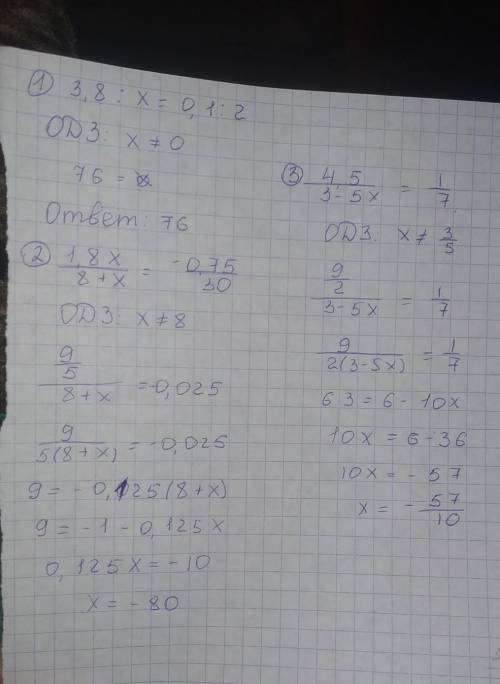 ① 3,8 : x = 0,1 : 2
ОДЗ: x ≠ 0
76 = x
Ответ: 76
② 1,8x / 8+x = -0,75 / 30
ОДЗ: x ≠ 8
9/5 / 8+x = -0,025
9 / 5(8+x) = -0,025
9 = -0,125(8+x)
9 = -1 - 0,125x
0,125x = -10
x = -80
③ 4,5 / 3-5x = 1/7
ОДЗ: x ≠ 3/5
9/2 / 3-5x = 1/7
9 / 2(3-5x) = 1/7
63 = 6 - 10x
10x = 6 - 36
10x = - 57
x = - 57/10